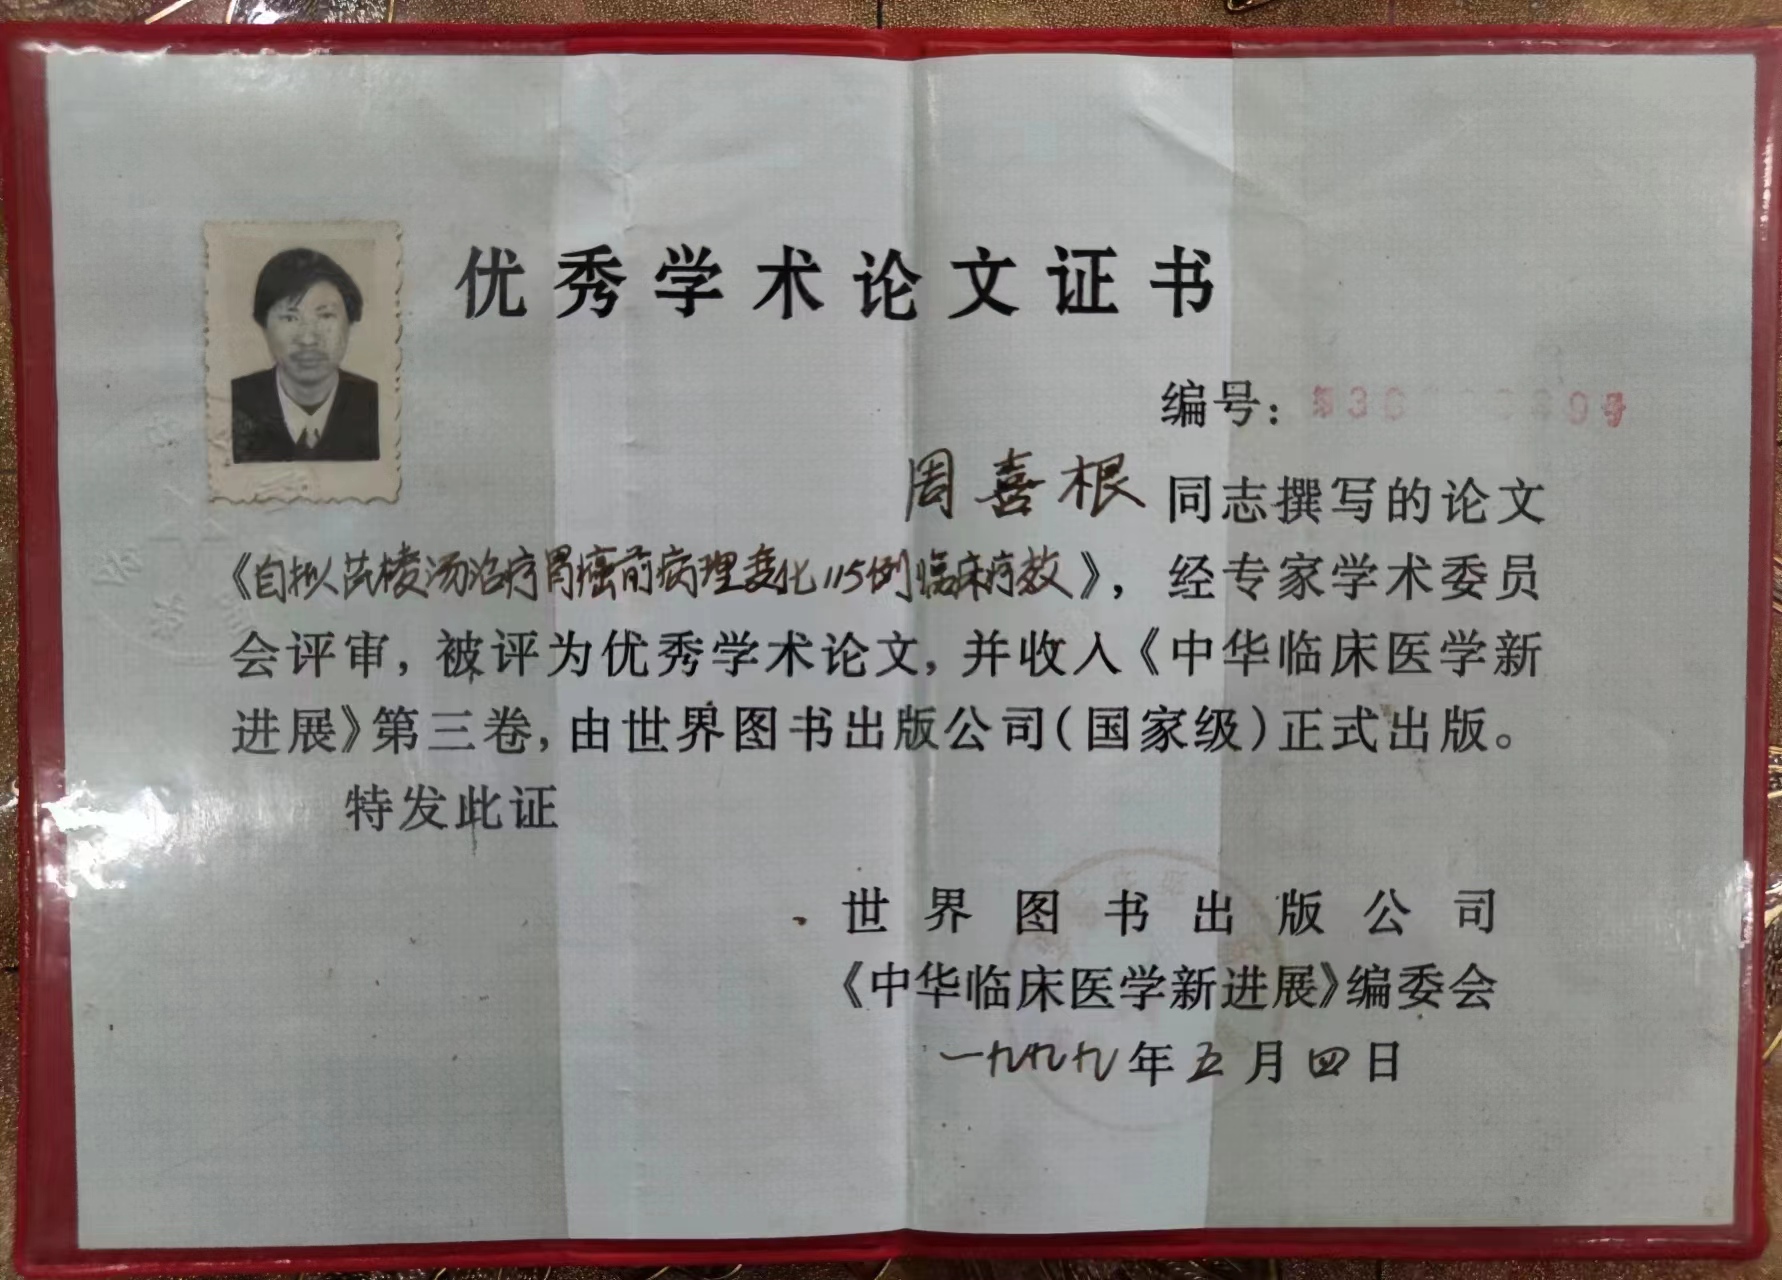 优秀学术论文证书
编号：
周喜根 同志撰写的论文
《自拟芪棱汤治疗胃癌前病理变化115例临床疗效》，经专家学术委员
会评审，被评为优秀学术论文，并收入《中华临床医学新
进展》第三卷，由世界图书出版公司（国家级）正式出版。
特发此证
世界图书出版公司
《中华临床医学新进展》编委会
一九九九年五月四日